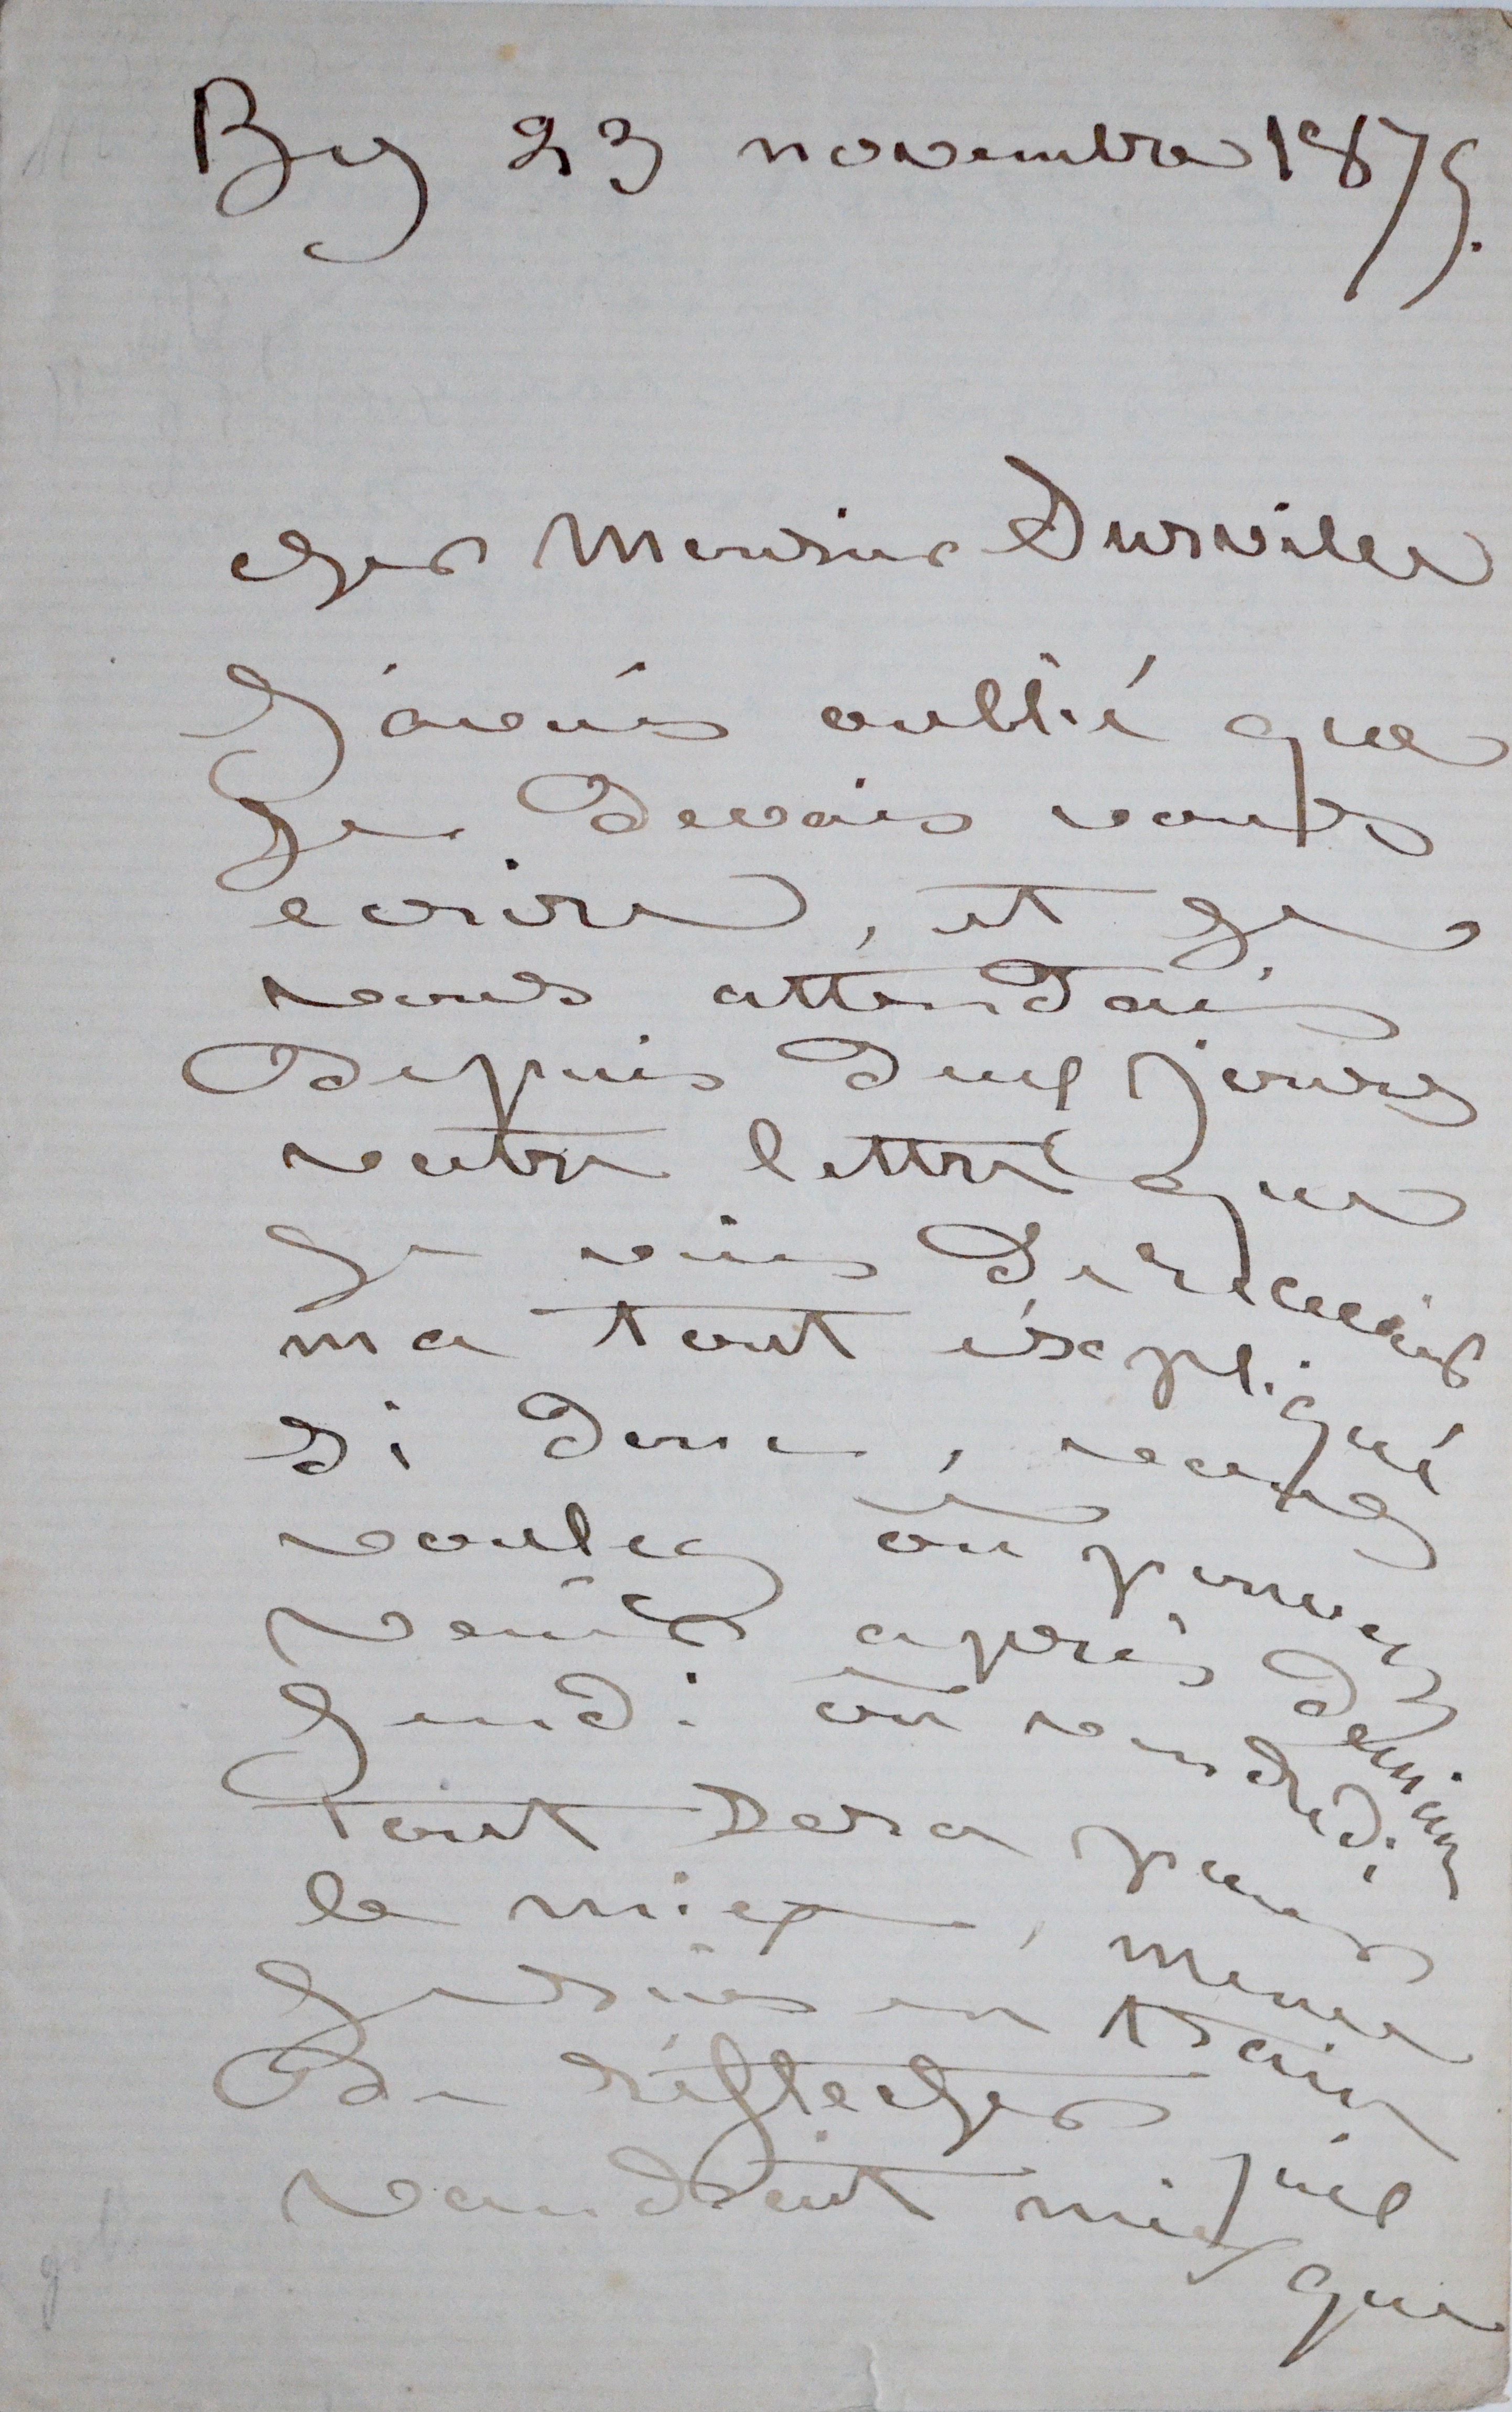 By 23 novembre 1875.
cher Monsieur Surville
J'avais oublié que
Je devais vous
ecrire, et je
vous attendais
depuis deux jours
votre lettre que
Je viens de recevoir
ma tout éxpliqué
si donc, vous
voulez ou pouvez
venir après demain
Jeudi ou vendredi
tout sera pour
le miex, meme
Je suis en train
de réflecher qu'il
vaudrait miex que